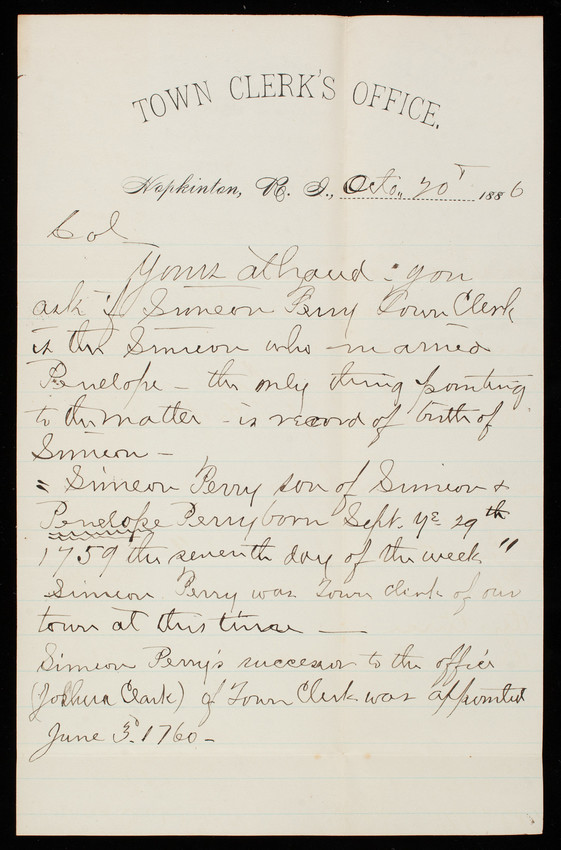 TOWN CLERK'S OFFICE.
Hopkinton, R. I., Octo. 20" 1886
Col
Yours at hand: you
ask if Simeon Perry Town Clerk
is the Simeon who married
Penelope - the only thing pointing
to the matter - is record of birth of
Simeon -
" Simeon Perry son of Simeon &
Penelope Perry born Sept. ye 29th
1759 the seventh day of the week"
Simeon Perry was Town clerk of our
town at this time —
Simeon Perry's successor to the office
(Joshua Clark) of Town Clerk was appointed
June 3d. 1760 -